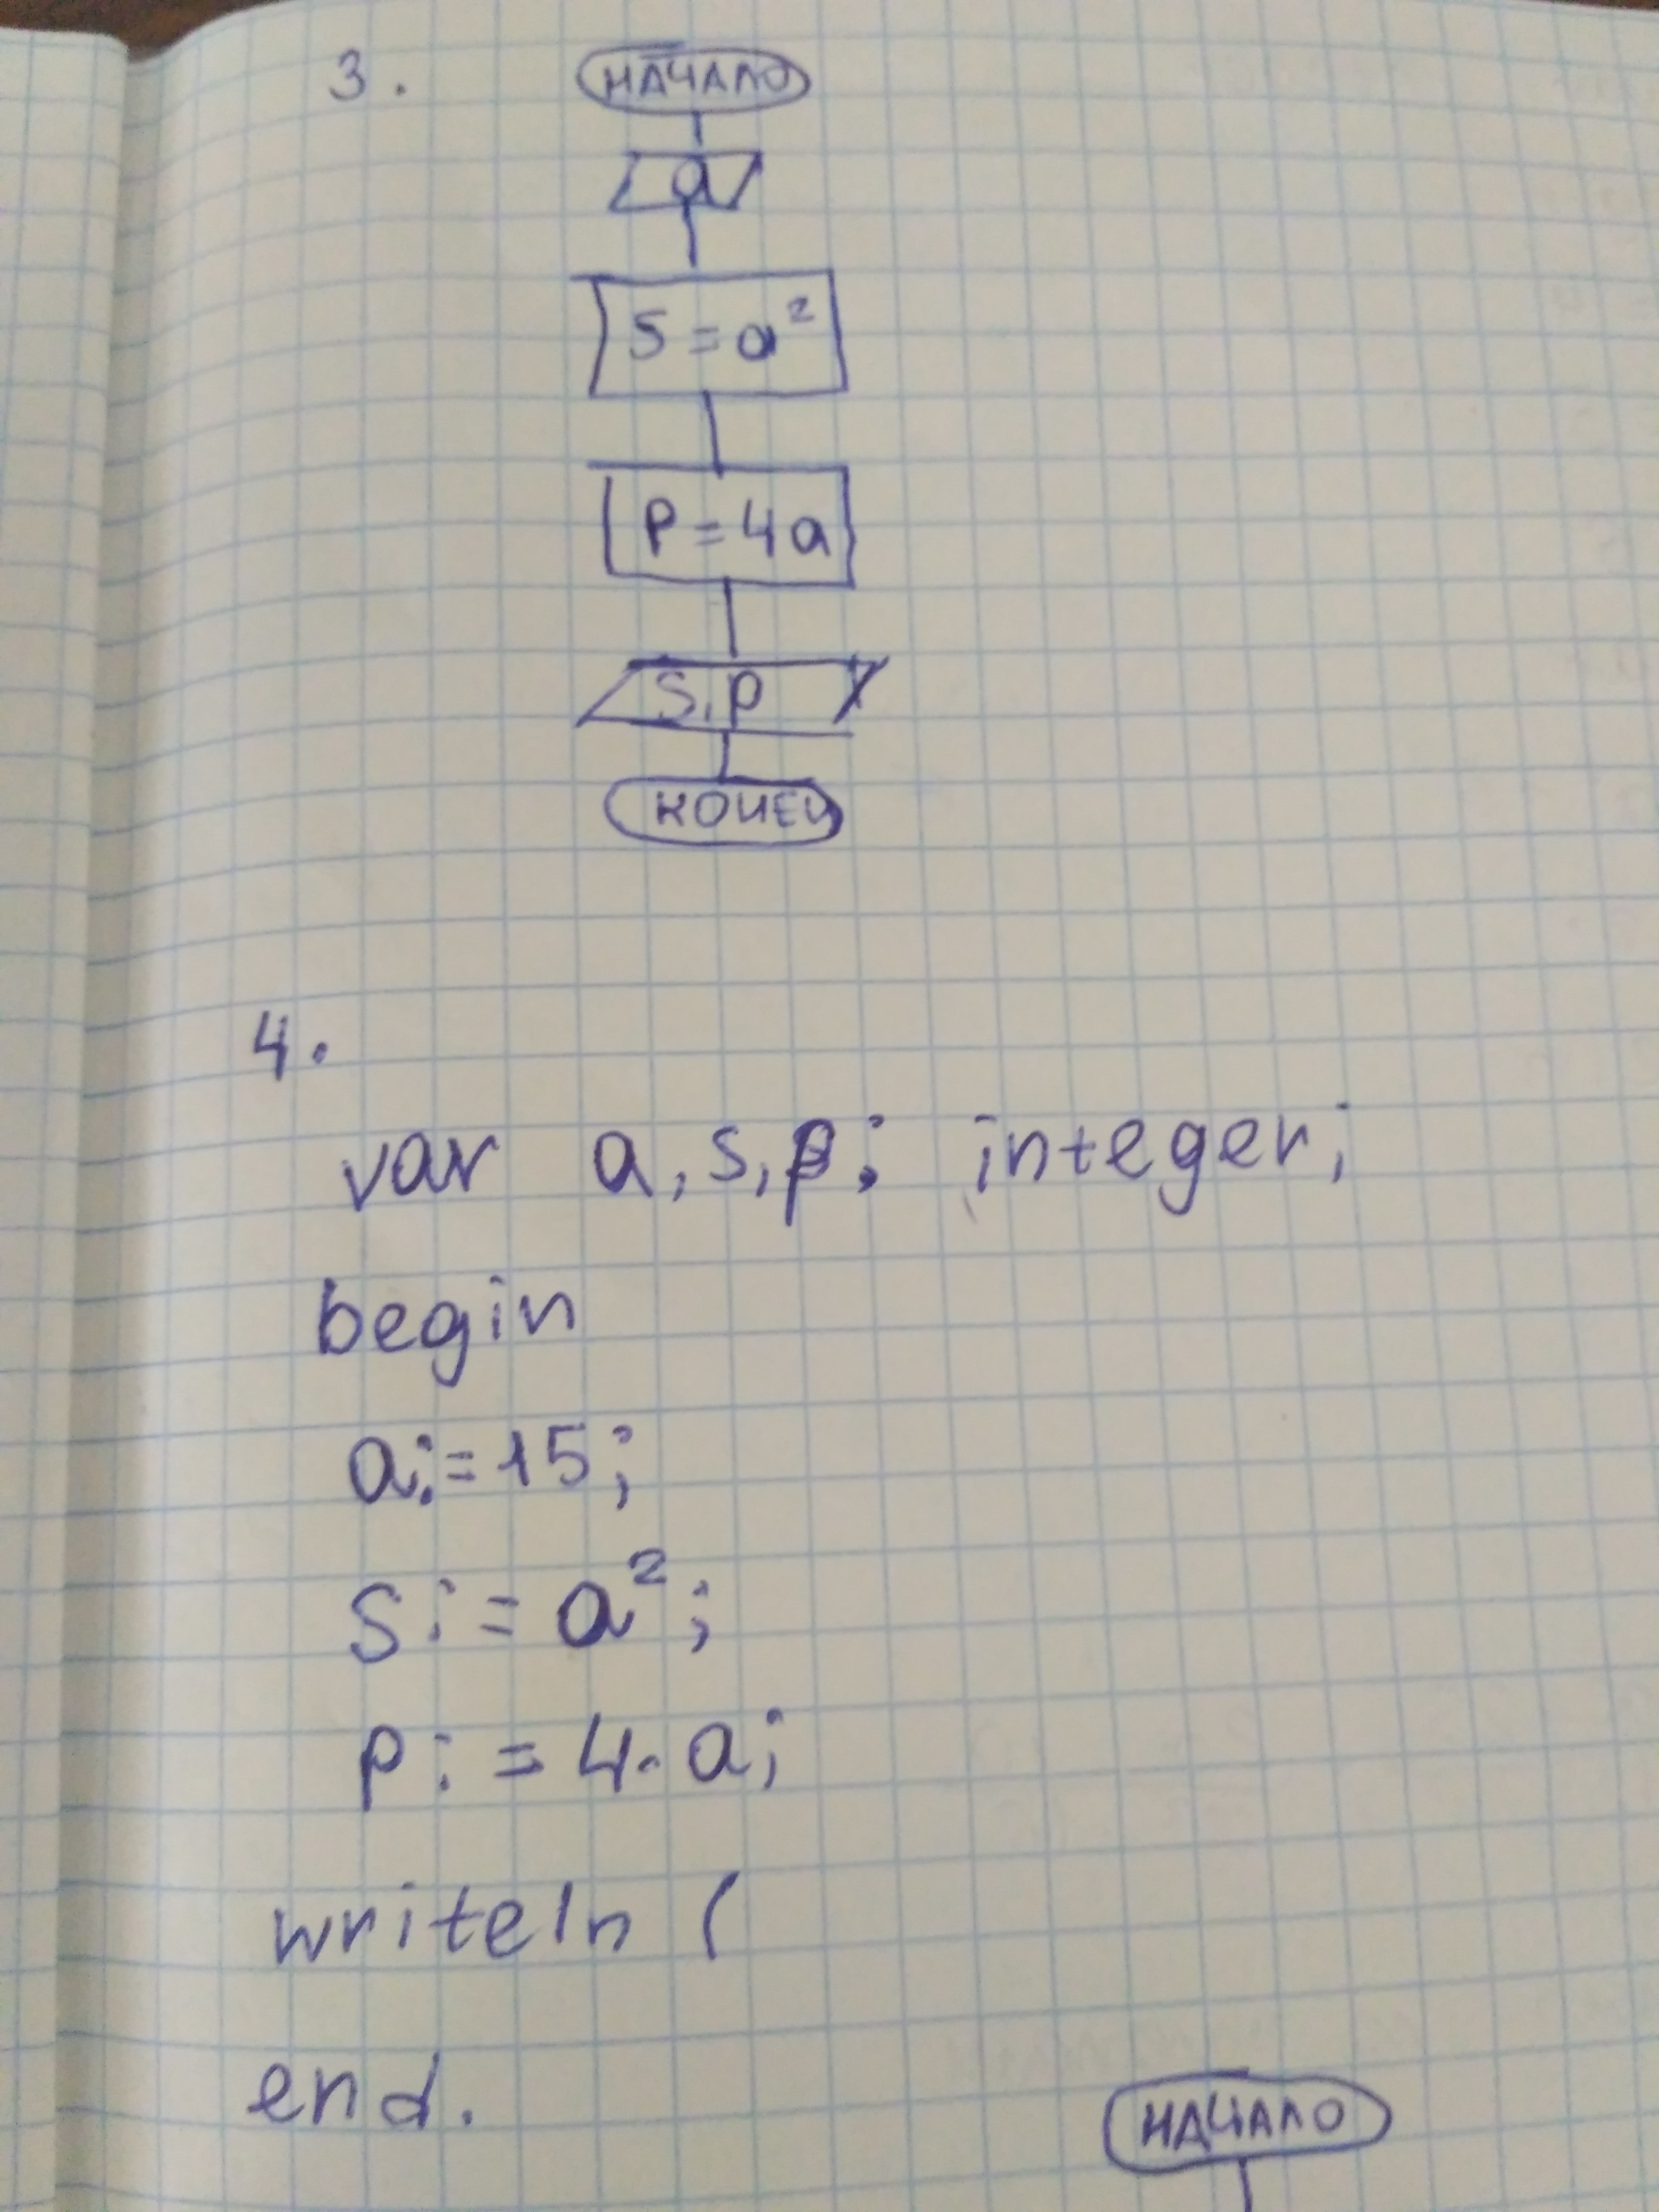 3.
НАЧАЛО
a
S = a²
P = 4a
S, P
КОНЕЦ
4.
var a, s, p: integer;
begin
a:=15;
s:= a²;
p:= 4·a;
writeln (
end.
НАЧАЛО